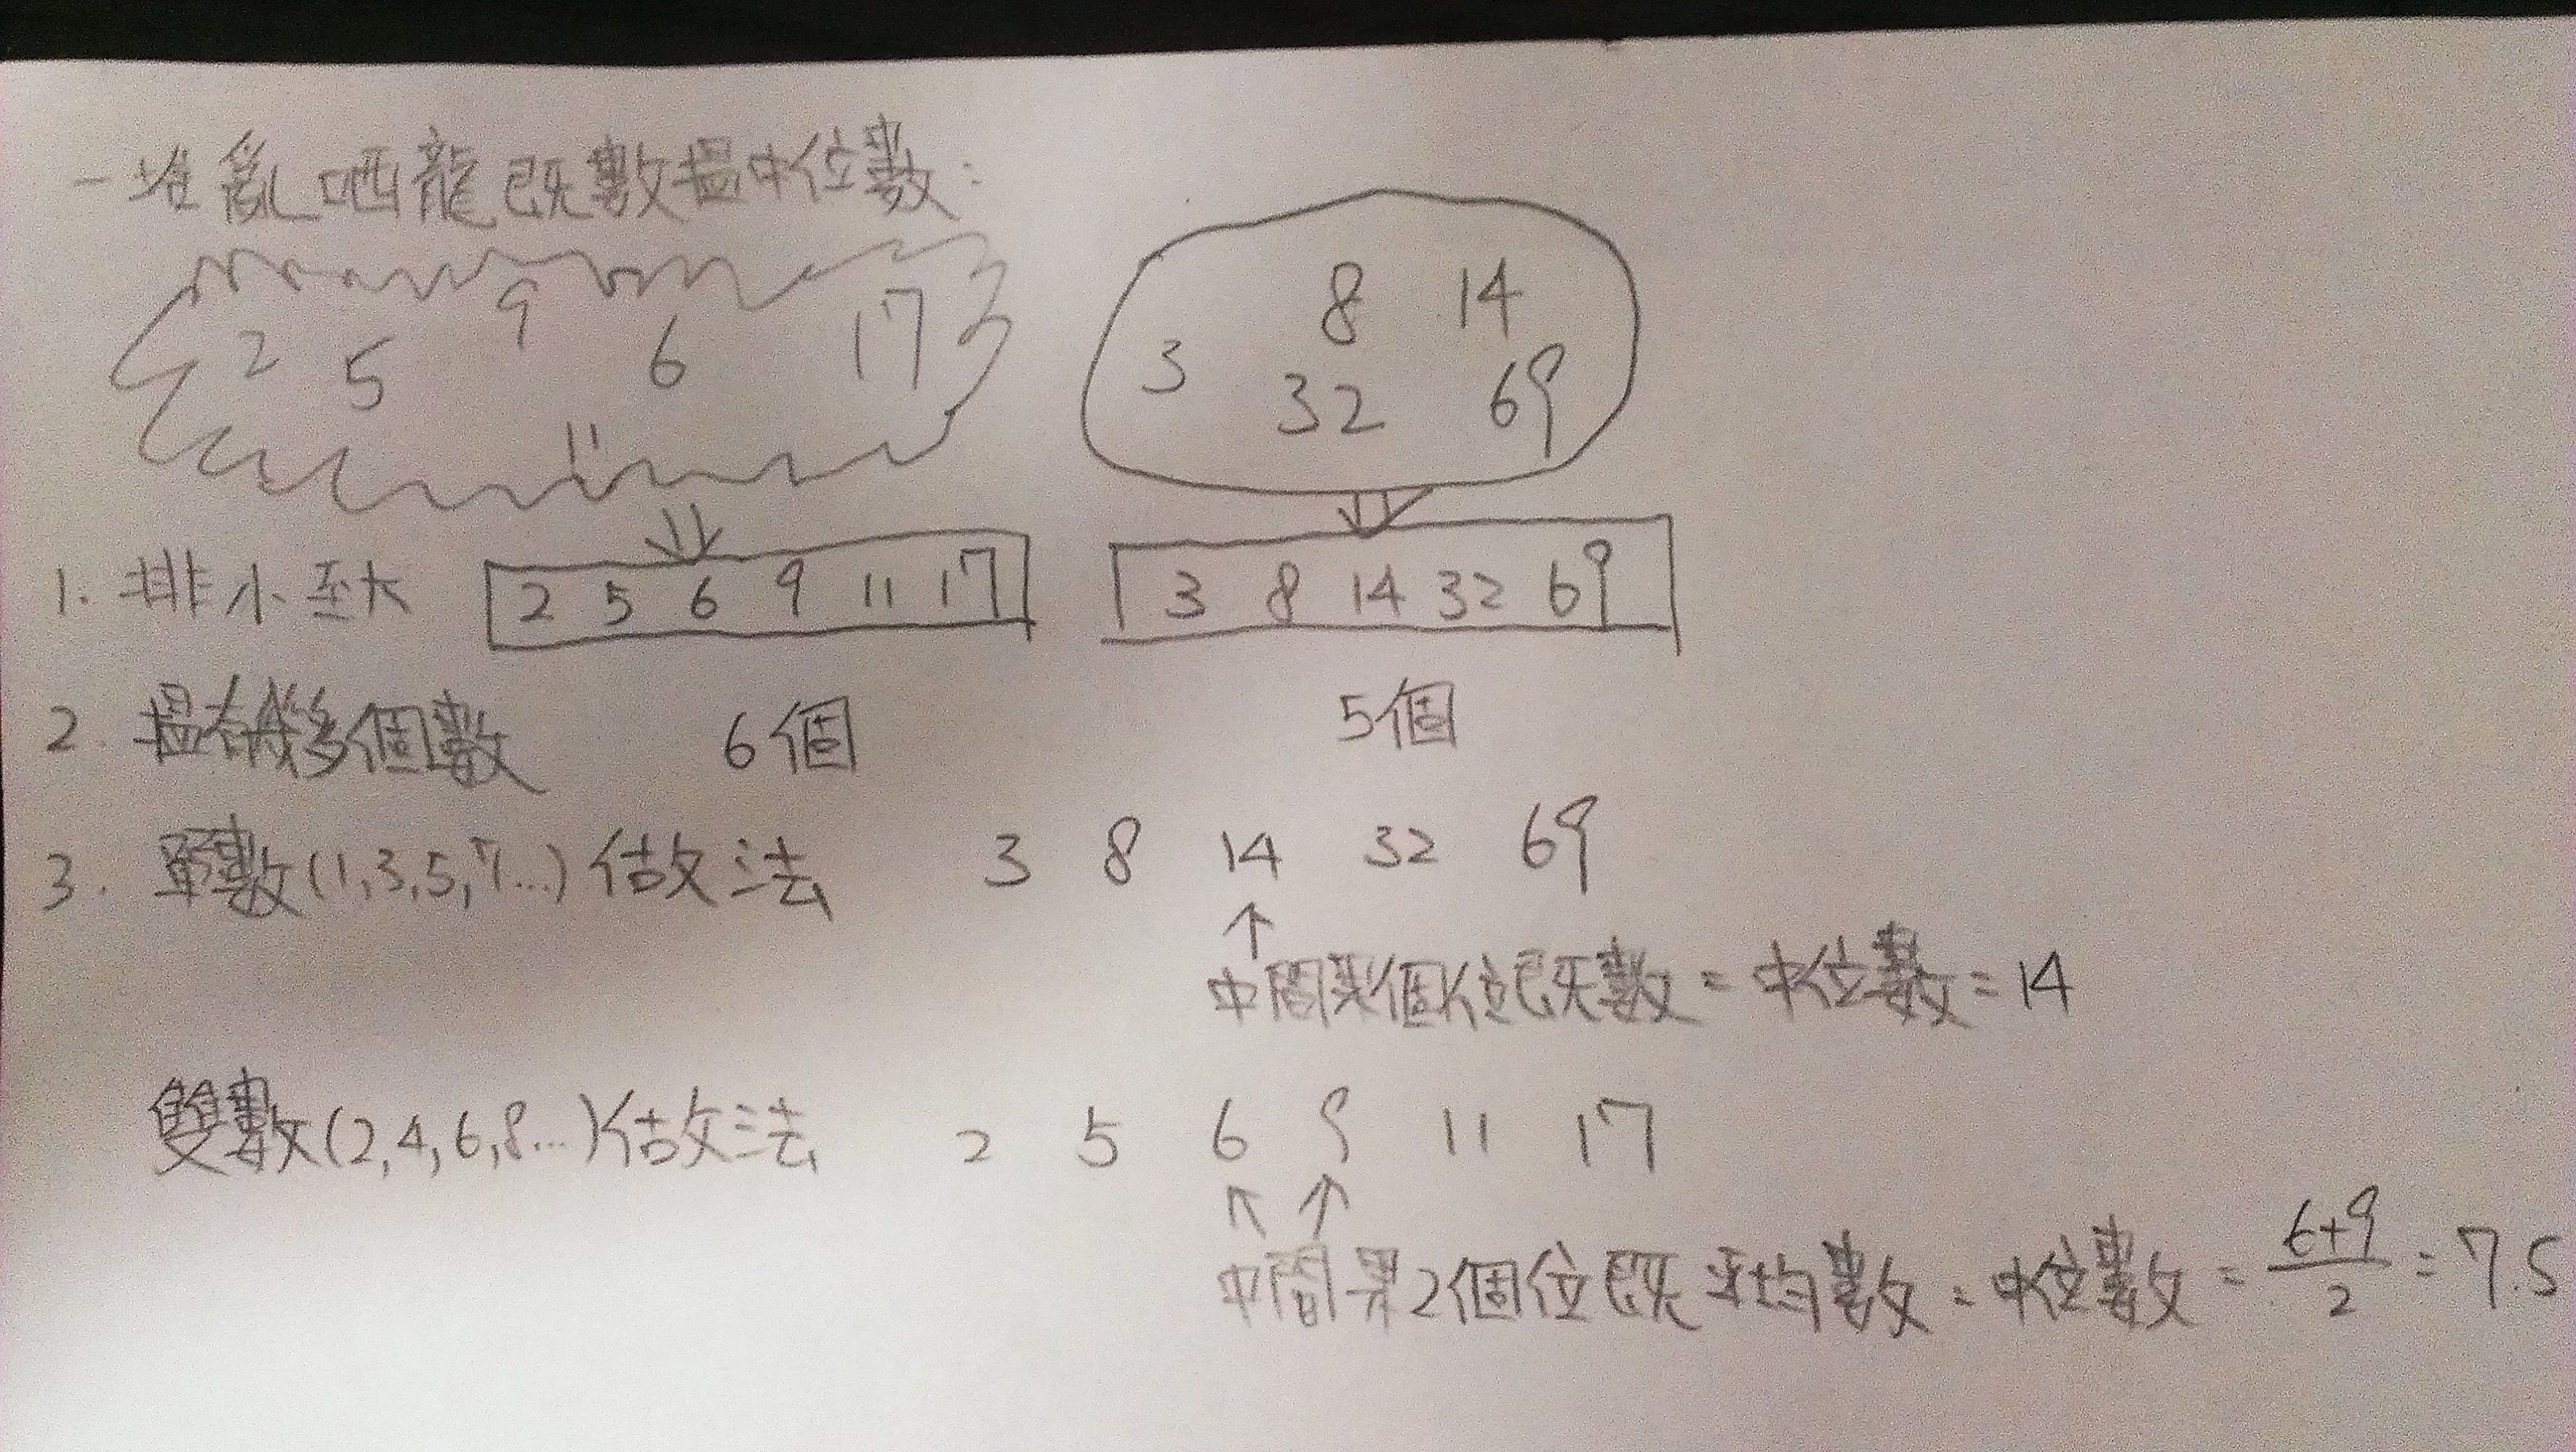 一堆亂哂龍既數揾中位數:
9
2 5 6 17
11
8 14
3 32 69
1. 排小至大 2 5 6 9 11 17 3 8 14 32 69
2. 揾有幾多個數 6個 5個
3. 單數(1,3,5,7...)做法 3 8 14 32 69
↑
中間果個位既數 = 中位數 = 14
雙數(2,4,6,8...)做法 2 5 6 9 11 17
↑ ↑
中間果2個位既平均數 = 中位數 = 6+9/2 = 7.5